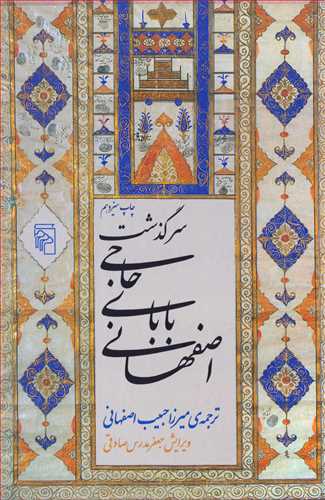 چاپ سیزدهم
سرگذشت
حاجی
بابای
اصفهانی
ترجمه‌ی میرزا حبیب اصفهانی
ویرایش جعفر مدرس صادقی